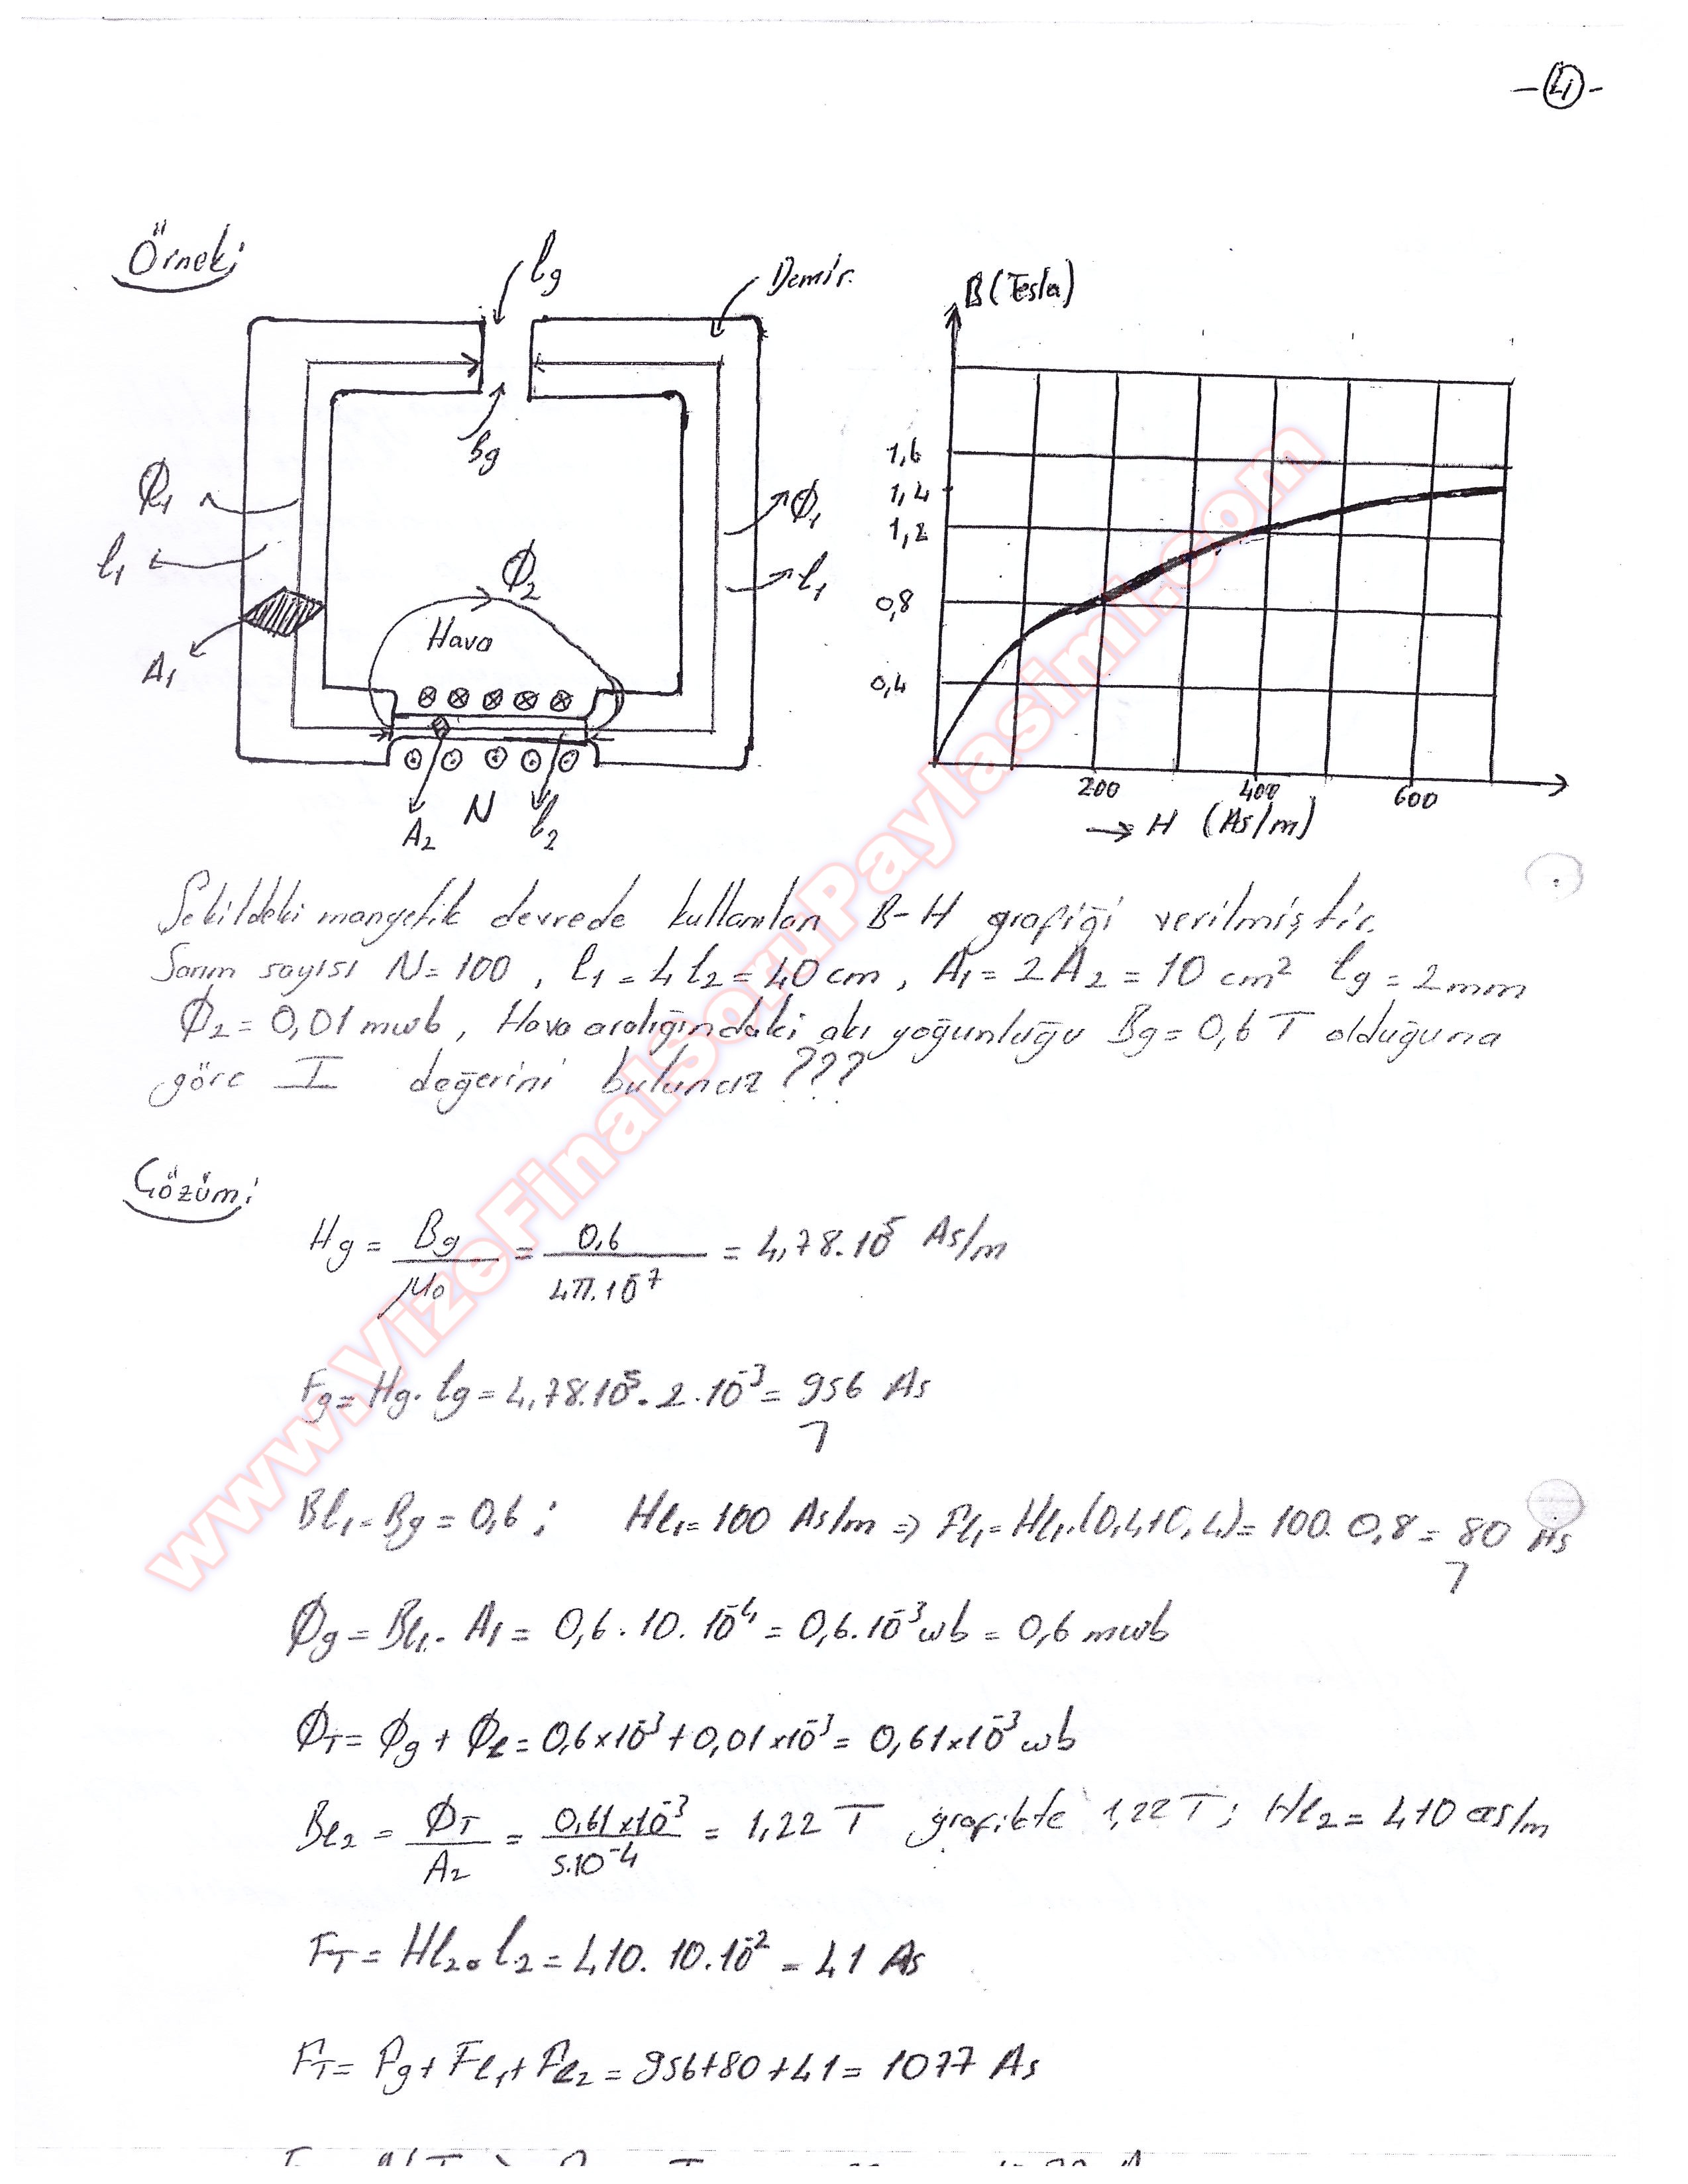 -41-
Örnek;
lg
Demir.
bg
Φ1
l1
A1
Φ1
l1
Φ2
Hava
A2
N
l2
B (Tesla)
1,6
1,4
1,2
0,8
0,4
200
400
600
→ H (As/m)
Şekildeki manyetik devrede kullanılan B-H grafiği verilmiştir.
Sarım sayısı N=100, l1=4l2=40cm, A1=2A2=10 cm² lg=2mm
Φ2=0,01 mwb, Hava aralığındaki akı yoğunluğu Bg=0,6 T olduğuna
göre I değerini bulunuz???
Çözüm;
Hg = Bg/μ0 = 0,6/4π.10⁻⁷ = 4,78.10⁵ As/m
Fg = Hg. lg = 4,78.10⁵. 2.10⁻³ = 956 As
Bl1=Bg=0,6; Hl1=100 As/m ⇒ Fl1=Hl1.(0,4+0,4)=100. 0,8= 80 As
Φg = Bl1. A1 = 0,6. 10. 10⁻⁴ = 0,6.10⁻³ wb = 0,6 mwb
ΦT = Φg + Φl = 0,6x10⁻³ + 0,01x10⁻³ = 0,61x10⁻³ wb
Bl2 = ΦT/A2 = 0,61x10⁻³/5.10⁻⁴ = 1,22 T grafikte 1,22 T; Hl2 = 410 as/m
FT = Hl2. l2 = 410. 10.10⁻² = 41 As
FT = Fg + Fl1 + Fl2 = 956+80+41 = 1077 As
www.VizeFinalSoruPaylasimi.com